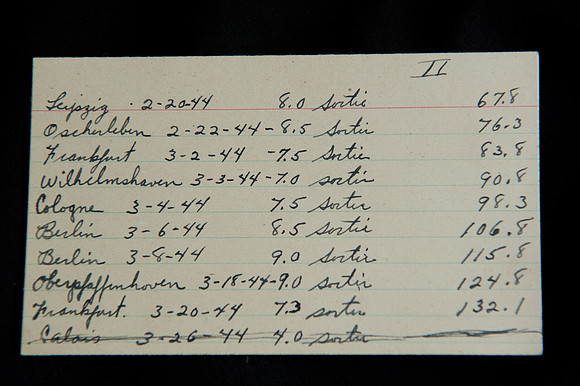 II
Leipzig · 2-20-44 8.0 Sortie 67.8
Oscherleben 2-22-44-8.5 Sortie 76.3
Frankfurt 3-2-44 -7.5 Sortie 83.8
Wilhelmshaven 3-3-44-7.0 sortie 90.8
Cologne 3-4-44 7.5 Sortie 98.3
Berlin 3-6-44 8.5 sortie 106.8
Berlin 3-8-44 9.0 Sortie 115.8
Oberpfaffenhoven 3-18-44-9.0 Sortie 124.8
Frankfurt. 3-20-44 7.3 sortie 132.1
Calais 3-26-44 4.0 sortie